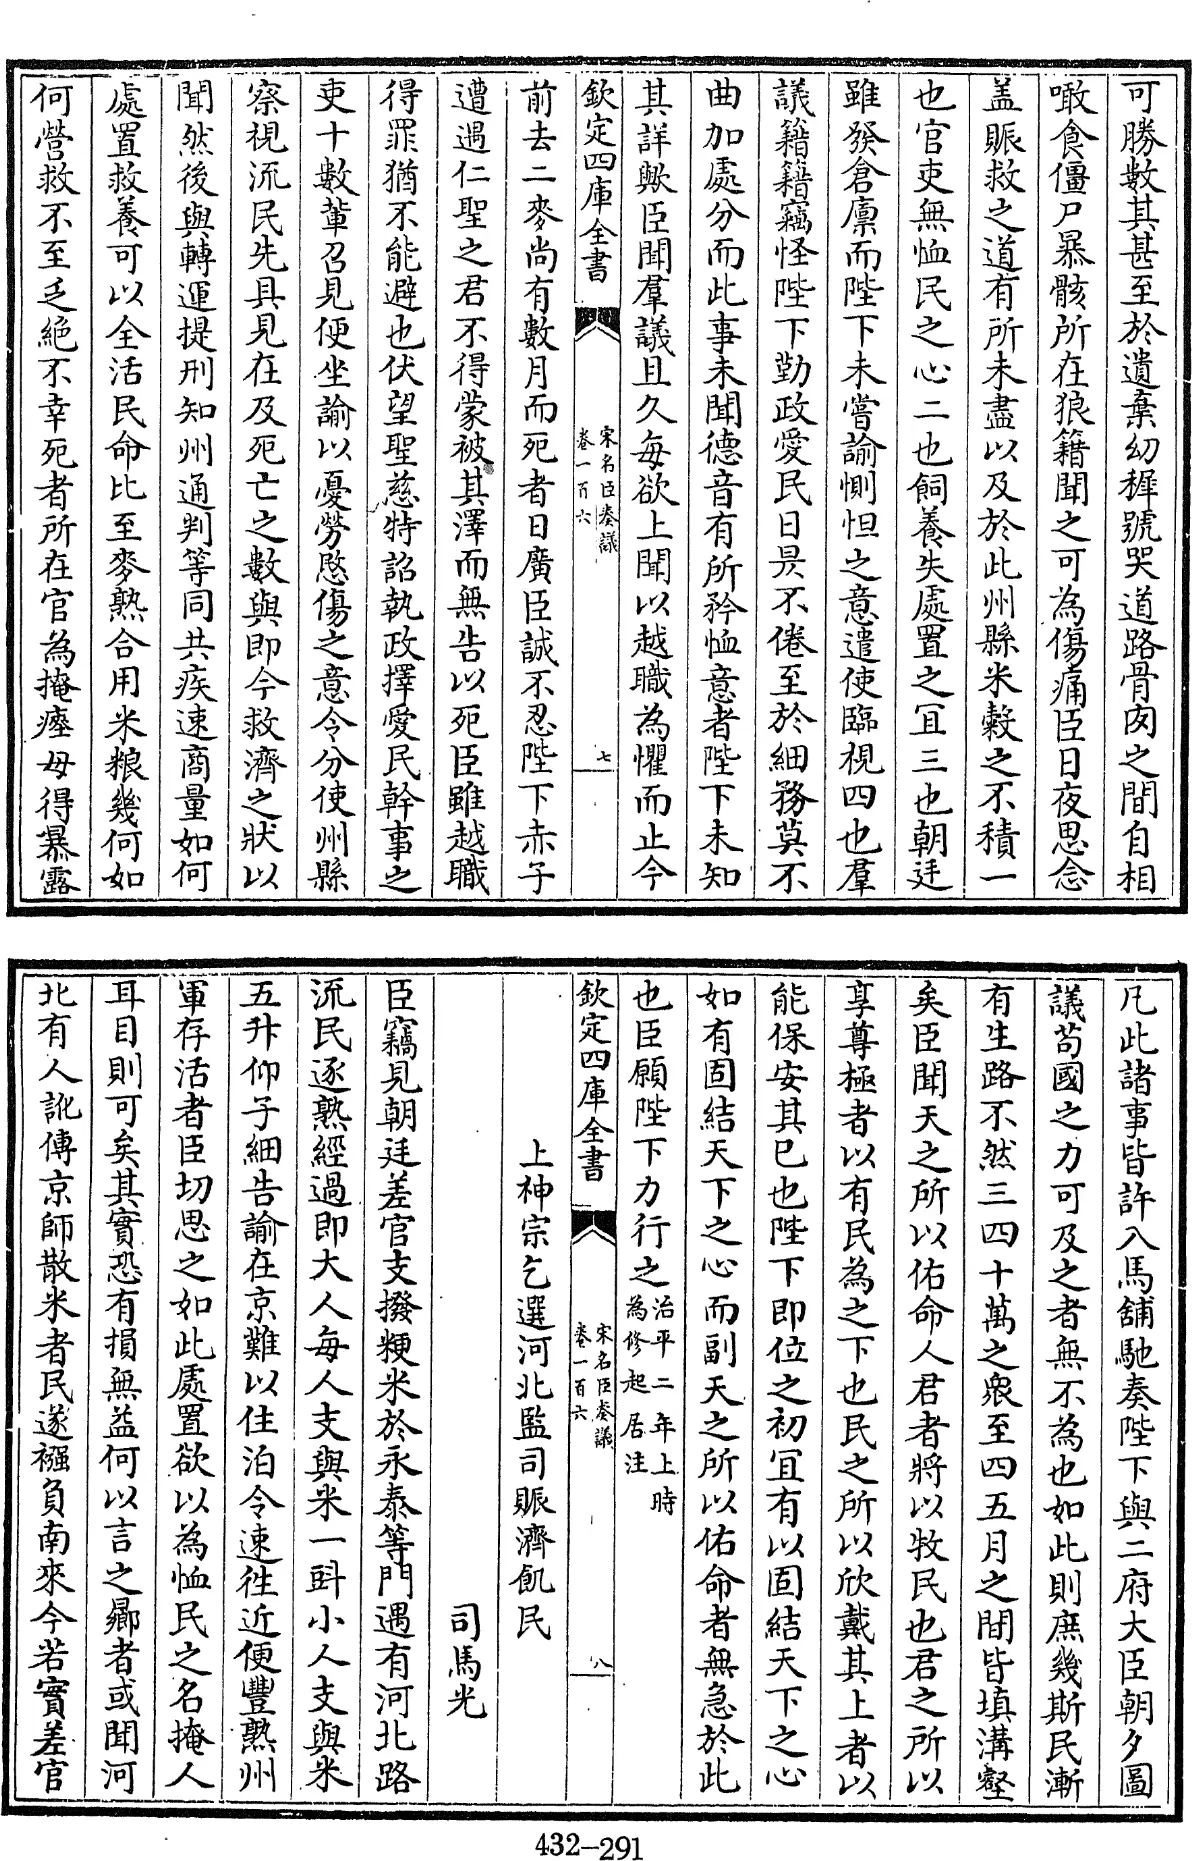 可勝數其甚至於遺棄幼穉號哭道路骨肉之間自相
噉食僵尸暴骸所在狼籍聞之可為傷痛臣日夜思念
盖賑救之道有所未盡以及於此州縣米穀之不積一
也官吏無恤民之心二也飼養失處置之宜三也朝廷
雖發倉廩而陛下未嘗諭惻怛之意遣使臨視四也羣
議籍籍竊怪陛下勤政愛民日昃不倦至於細務莫不
曲加處分而此事未聞德音有所矜恤意者陛下未知
其詳歟臣聞羣議且久每欲上聞以越職為懼而止今
欽定四庫全書
宋名臣奏議
卷一百六
七
前去二麥尚有數月而死者日廣臣誠不忍陛下赤子
遭遇仁聖之君不得蒙被其澤而無告以死臣雖越職
得罪猶不能避也伏望聖慈特詔執政擇愛民幹事之
吏十數輩召見便坐諭以憂勞愍傷之意令分使州縣
察視流民先具見在及死亡之數與即今救濟之狀以
聞然後與轉運提刑知州通判等同共疾速商量如何
處置救養可以全活民命比至麥熟合用米粮幾何如
何營救不至乏絶不幸死者所在官為掩瘞毋得暴露
凡此諸事皆許入馬舖馳奏陛下與二府大臣朝夕圖
議苟國之力可及之者無不為也如此則庶幾斯民漸
有生路不然三四十萬之衆至四五月之間皆填溝壑
矣臣聞天之所以佑命人君者將以牧民也君之所以
享尊極者以有民為之下也民之所以欣戴其上者以
能保安其已也陛下即位之初宜有以固結天下之心
如有固結天下之心而副天之所以佑命者無急於此
也臣願陛下力行之治平二年上時
為修起居注
欽定四庫全書
宋名臣奏議
卷一百六
八
上神宗乞選河北監司賑濟飢民
司馬光
臣竊見朝廷差官支撥粳米於永泰等門遇有河北路
流民逐熟經過即大人每人支與米一㪷小人支與米
五升仰子細告諭在京難以住泊令速徃近便豐熟州
軍存活者臣切思之如此處置欲以為恤民之名掩人
耳目則可矣其實恐有損無益何以言之曏者或聞河
北有人訛傳京師散米者民遂襁負南來今若實差官
432-291